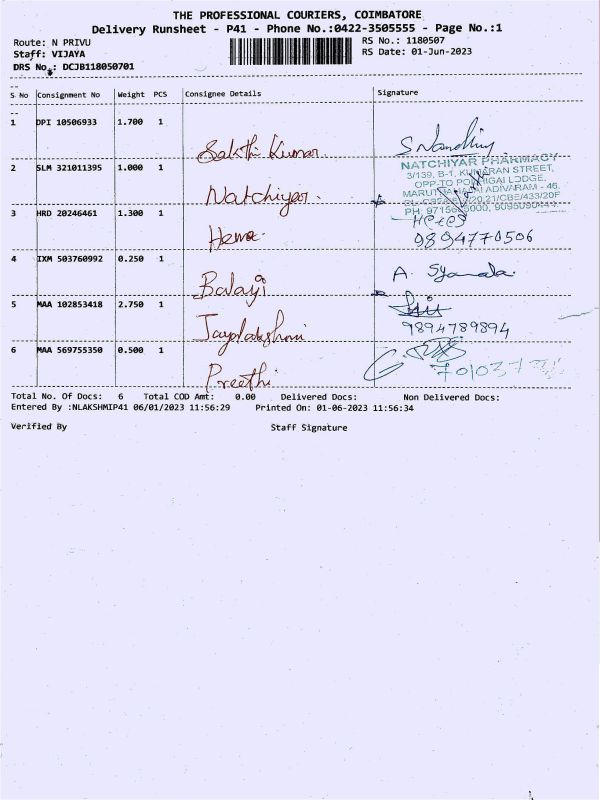 THE PROFESSIONAL COURIERS, COIMBATORE
Delivery Runsheet - P41 - Phone No.:0422-3505555 - Page No.:1
Route: N PRIVU RS No.: 1180507
Staff: VIJAYA RS Date: 01-Jun-2023
DRS No.: DCJB118050701
S No Consignment No Weight PCS Consignee Details Signature
1 DPI 10506933 1.700 1
Sakthi Kumar S Nandhiny
NATCHIYAR PHARMACY
2 SLM 321011395 1.000 1
3/139, B-1, KUMARAN STREET,
OPP-TO LODGE,
Natchiyar. ADIVARAM - 46.
3 HRD 20246461 1.300 1
Hema. 9894770506
4 IXM 503760992 0.250 1
Balaji A. Syamala
5 MAA 102853418 2.750 1
Jayalakshmi 9894789894
6 MAA 569755350 0.500 1
Preethi
Total No. Of Docs: 6 Total COD Amt: 0.00 Delivered Docs: Non Delivered Docs:
Entered By :NLAKSHMIP41 06/01/2023 11:56:29 Printed On: 01-06-2023 11:56:34
Verified By Staff Signature